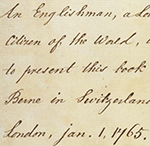 An Englishman, a Lo
Citizen of the World, i
to present this book
Berne in Switzerland
London, jan. 1, 1765.